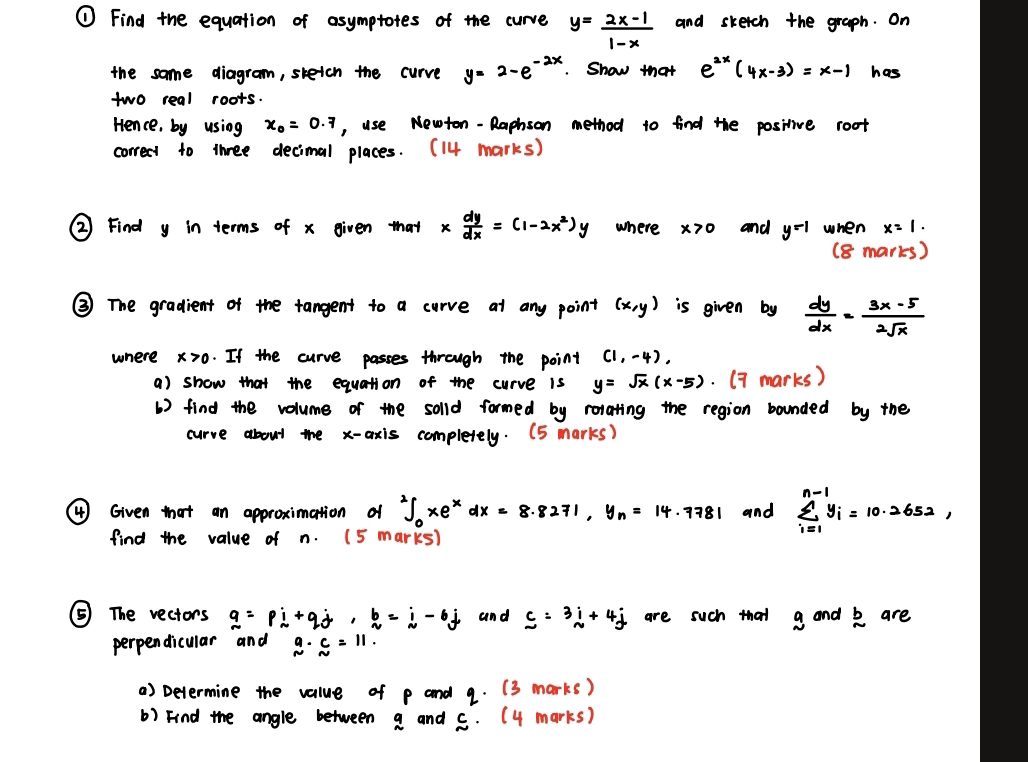 ① Find the equation of asymptotes of the curve y = (2x-1)/(1-x) and sketch the graph. On
the same diagram, sketch the curve y = 2-e^(-2x). Show that e^(2x) (4x-3) = x-1 has
two real roots.
Hence, by using x₀ = 0.7, use Newton - Raphson method to find the positive root
correct to three decimal places. (14 marks)
② Find y in terms of x given that x dy/dx = (1-2x²)y where x>0 and y=1 when x=1.
(8 marks)
③ The gradient of the tangent to a curve at any point (x,y) is given by dy/dx = (3x-5)/(2√x)
where x>0. If the curve passes through the point (1,-4),
a) Show that the equation of the curve is y = √x (x-5). (7 marks)
b) find the volume of the solid formed by rotating the region bounded by the
curve about the x-axis completely. (5 marks)
④ Given that an approximation of ²∫₀ xeˣ dx = 8.8271, yₙ = 14.7781 and Σ_{i=1}^{n-1} yᵢ = 10.2652,
find the value of n. (5 marks)
⑤ The vectors a = pi+qj, b = i - 6j and c = 3i+4j are such that a and b are
perpendicular and a.c = 11.
a) Determine the value of p and q. (3 marks)
b) Find the angle between a and c. (4 marks)